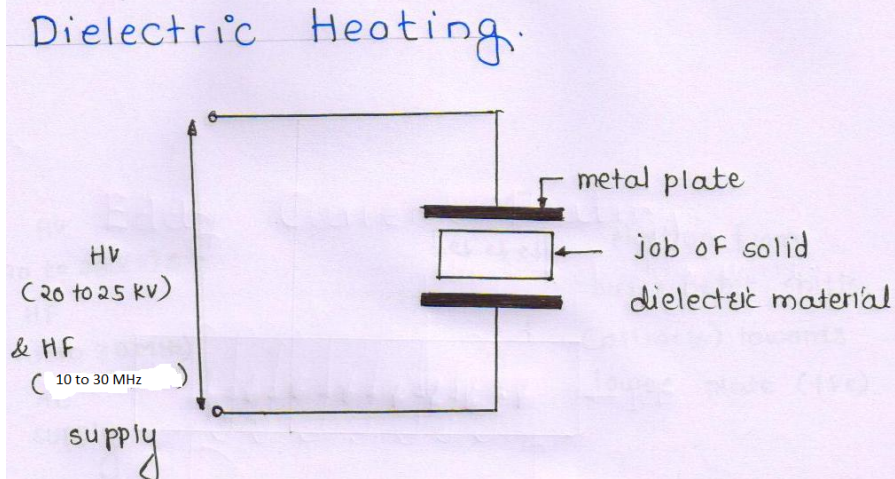 Dielectric Heating.
metal plate
job of solid
dielectric material
HV
(20 to 25 kV)
& HF
( 10 to 30 MHz )
supply